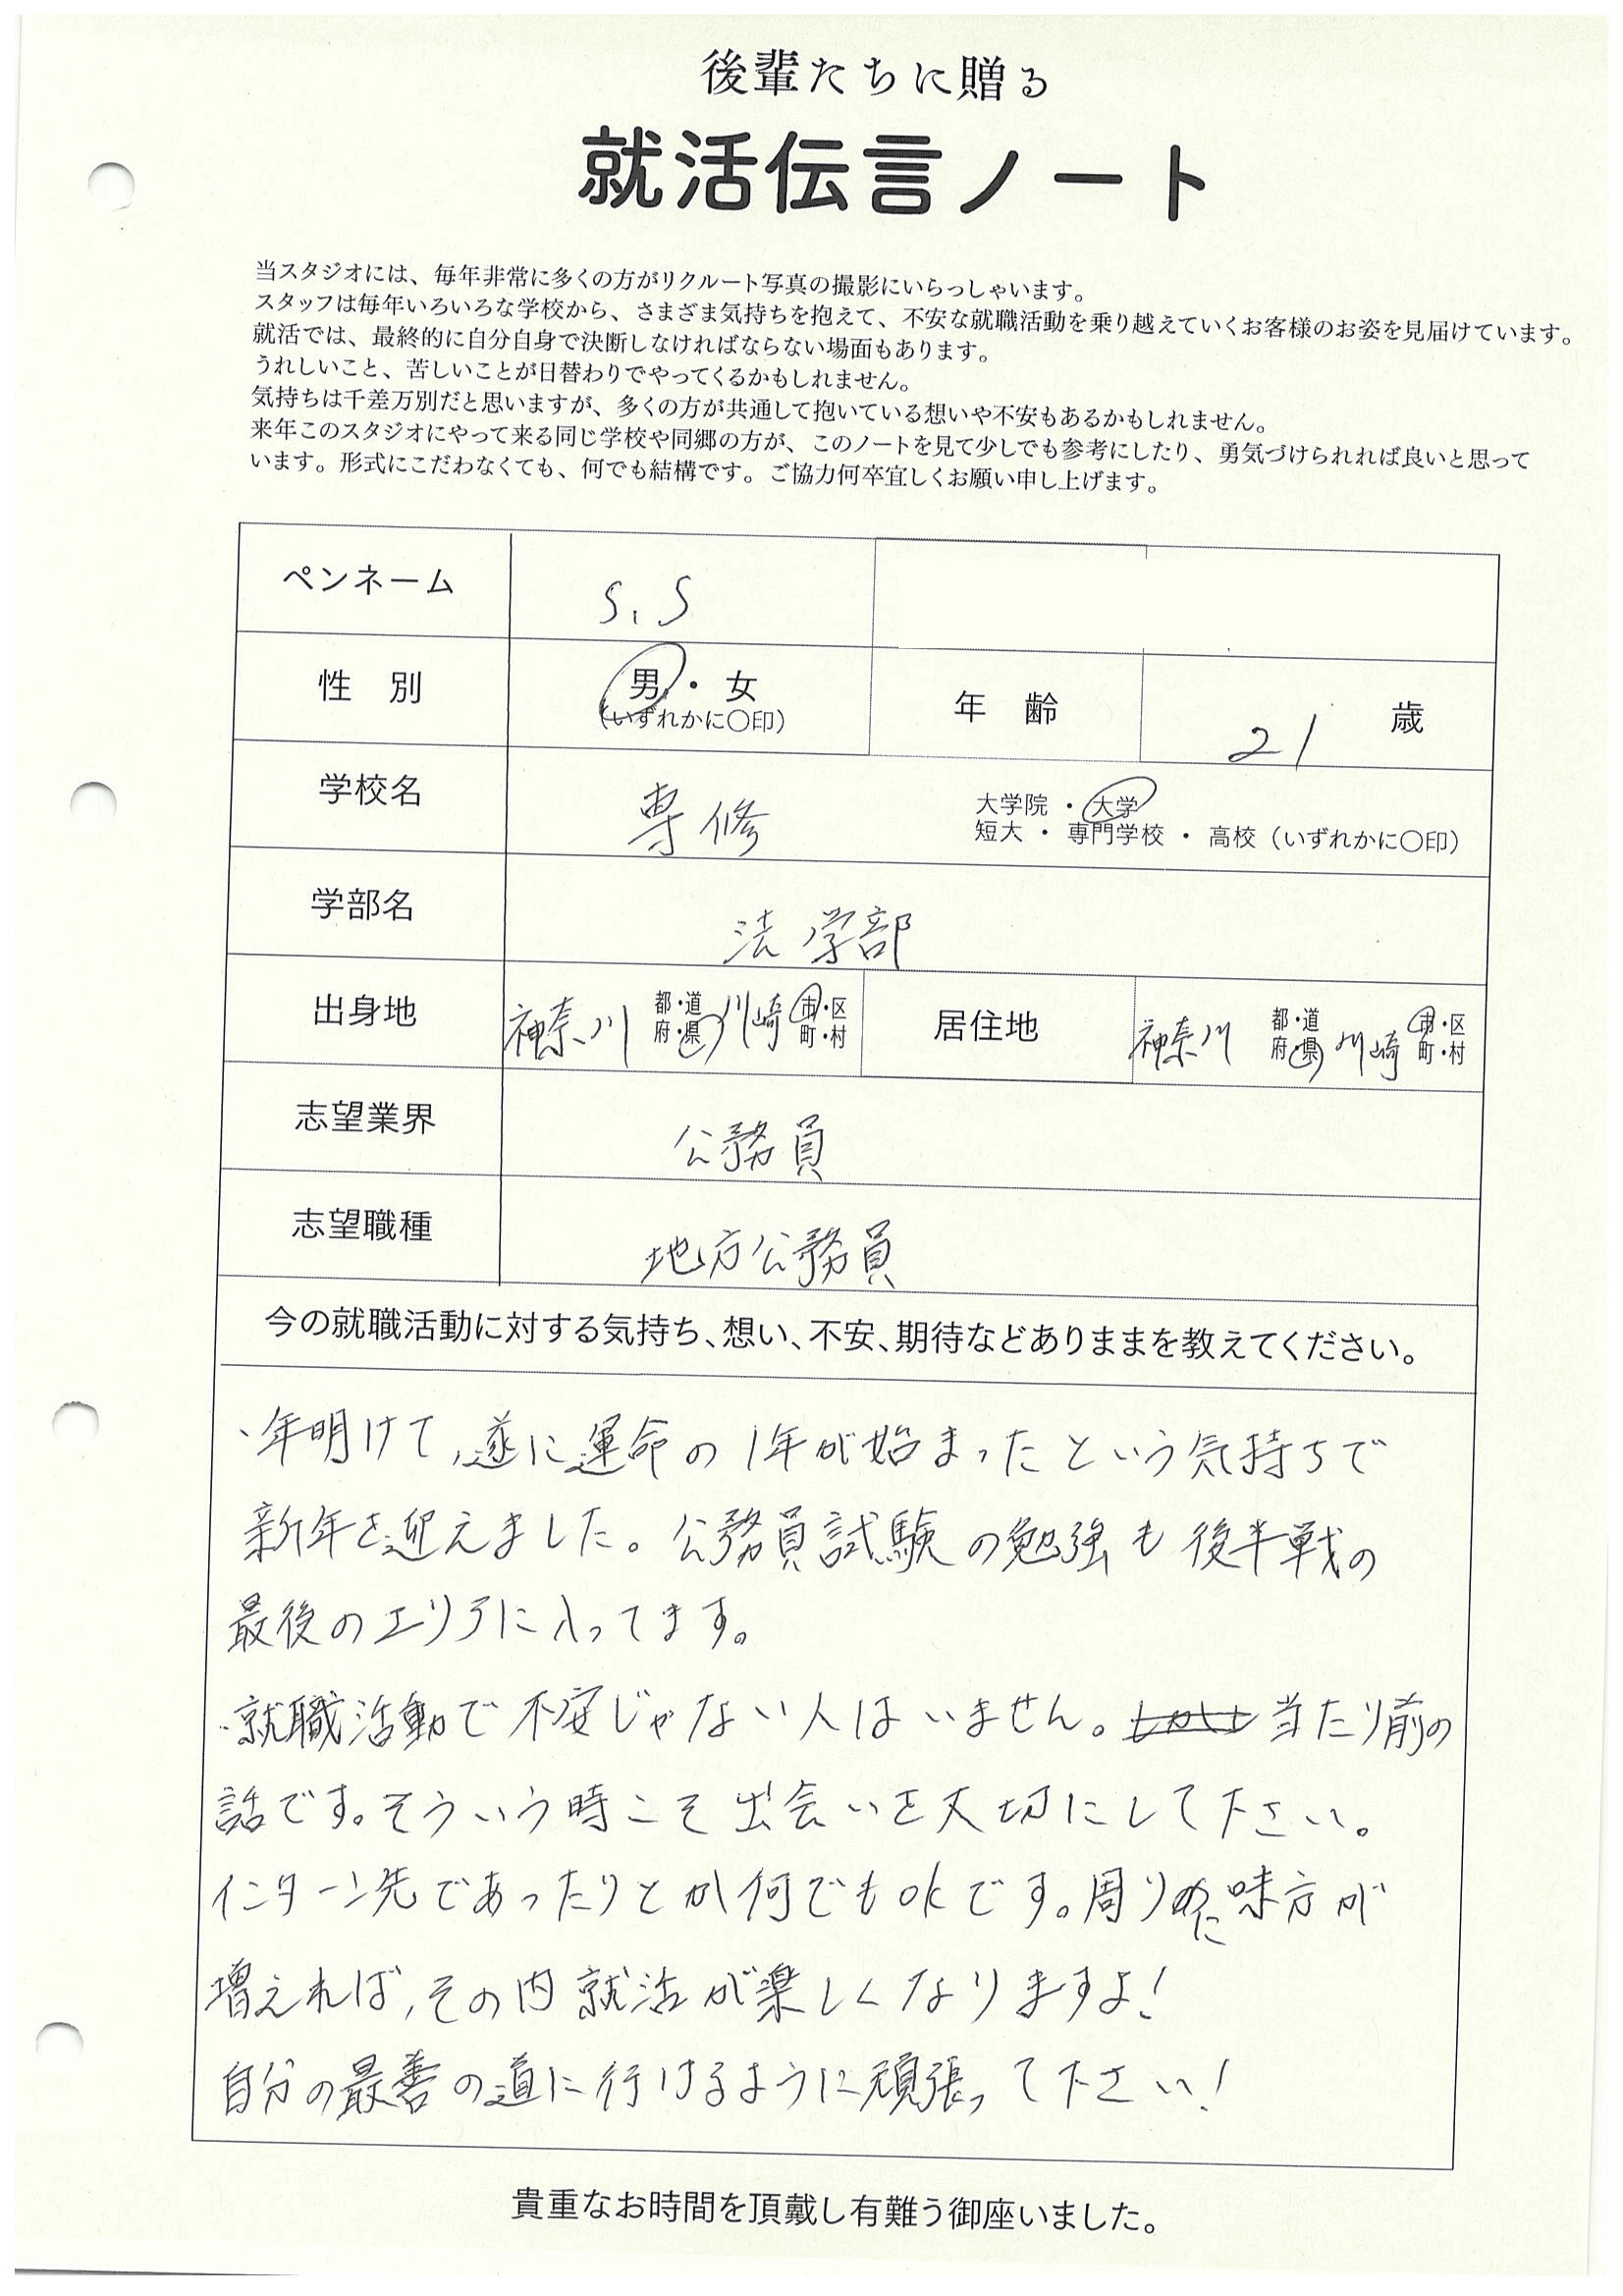 後輩たちに贈る
就活伝言ノート
当スタジオには、毎年非常に多くの方がリクルート写真の撮影にいらっしゃいます。
スタッフは毎年いろいろな学校から、さまざま気持ちを抱えて、不安な就職活動を乗り越えていくお客様のお姿を見届けています。
就活では、最終的に自分自身で決断しなければならない場面もあります。
うれしいこと、苦しいことが日替わりでやってくるかもしれません。
気持ちは千差万別だと思いますが、多くの方が共通して抱いている想いや不安もあるかもしれません。
来年このスタジオにやって来る同じ学校や同郷の方が、このノートを見て少しでも参考にしたり、勇気づけられれば良いと思って
います。形式にこだわなくても、何でも結構です。ご協力何卒宜しくお願い申し上げます。
ペンネーム S.S
性 別 男・女 (いずれかに〇印) 年 齢 21 歳
学校名 専修 大学院 ・ 大学
短大 ・ 専門学校 ・ 高校 (いずれかに〇印)
学部名 法学部
出身地 神奈川 都・道府・県 川崎 市・区町・村 居住地 神奈川 都・道府・県 川崎 市・区町・村
志望業界 公務員
志望職種 地方公務員
今の就職活動に対する気持ち、想い、不安、期待などありままを教えてください。
・年明けて,遂に運命の1年が始まったという気持ちで
新年を迎えました。公務員試験の勉強も後半戦の
最後のエリアに入ってます。
・就職活動で不安じゃない人はいません。当たり前の
話です。そういう時こそ出会いを大切にして下さい。
インターン先であったりとか何でもokです。周りに味方が
増えれば,その内就活が楽しくなりますよ!
自分の最善の道に行けるように頑張って下さい!
貴重なお時間を頂戴し有難う御座いました。